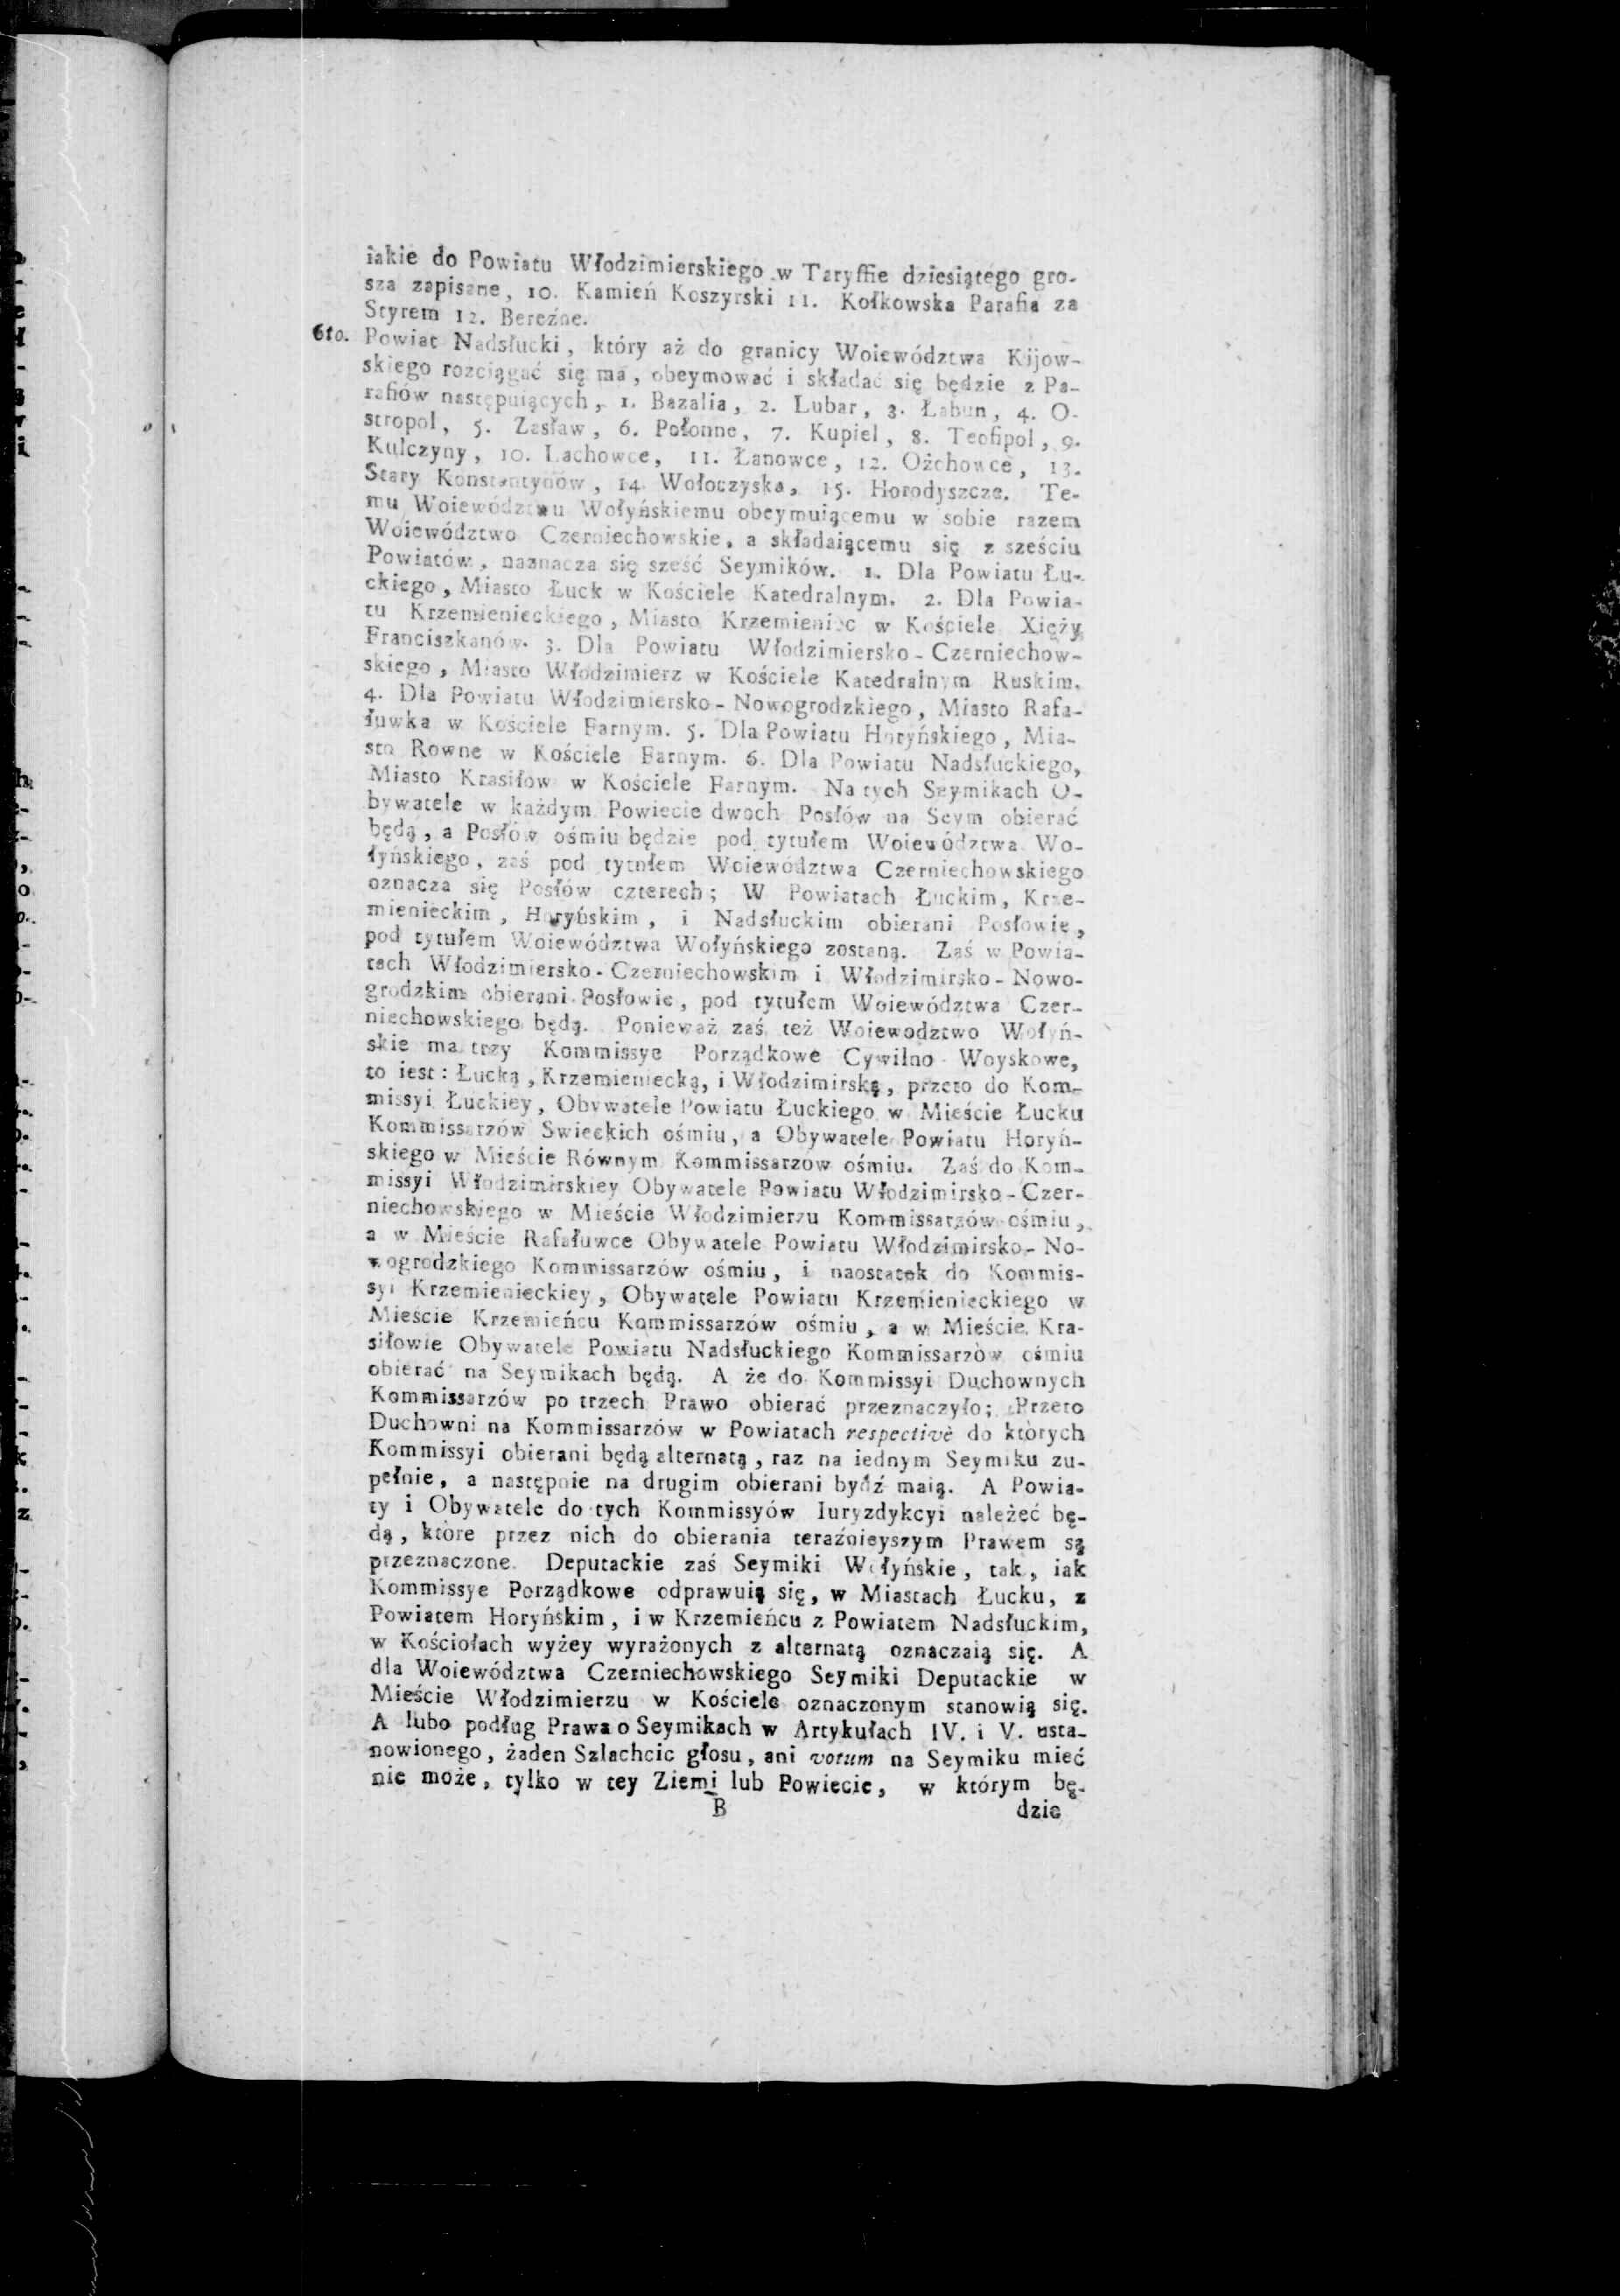 iakie do Powiatu Włodzimierskiego w Taryffie dziesiątego gro-
sza zapisane, 10. Kamień Koszyrski 11. Kołkowska Parafia za
Styrem 12. Bereźne.
6to. Powiat Nadsłucki, który aż do granicy Woiewództwa Kijow-
skiego rozciągać się ma, obeymować i składać się będzie z Pa-
rafiów następuiących, 1. Bazalia, 2. Lubar, 3. Łabun, 4. O-
stropol, 5. Zasław, 6. Połonne, 7. Kupiel, 8. Teofipol, 9.
Kulczyny, 10. Lachowce, 11. Łanowce, 12. Ożchowce, 13.
Stary Konstantynów, 14 Wołoczyska, 15. Horodyszcze. Te-
mu Woiewództwu Wołyńskiemu obeymuiącemu w sobie razem
Woiewództwo Czerniechowskie, a składaiącemu się z sześciu
Powiatów, naznacza się sześć Seymików. 1. Dla Powiatu Łu-
ckiego, Miasto Łuck w Kościele Katedralnym. 2. Dla Powia-
tu Krzemienieckiego, Miasto Krzemieniec w Kościele Xięży
Franciszkanów. 3. Dla Powiatu Włodzimiersko-Czerniechow-
skiego, Miasto Włodzimierz w Kościele Katedralnym Ruskim.
4. Dla Powiatu Włodzimiersko-Nowogrodzkiego, Miasto Rafa-
łuwka w Kościele Farnym. 5. Dla Powiatu Horyńskiego, Mia-
sto Rowne w Kościele Farnym. 6. Dla Powiatu Nadsłuckiego,
Miasto Krasiłow w Kościele Farnym. Na tych Seymikach O-
bywatele w każdym Powiecie dwoch Posłów na Seym obierać
będą, a Posłów ośmiu będzie pod tytułem Woiewództwa Wo-
łyńskiego, zaś pod tytułem Woiewództwa Czerniechowskiego
oznacza się Posłów czterech; W Powiatach Łuckim, Krze-
mienieckim, Horyńskim, i Nadsłuckim obierani Posłowie,
pod tytułem Woiewództwa Wołyńskiego zostaną. Zaś w Powia-
tach Włodzimiersko-Czerniechowskim i Włodzimirsko-Nowo-
grodzkim obierani Posłowie, pod tytułem Woiewództwa Czer-
niechowskiego będą. Ponieważ zaś też Woiewodztwo Wołyń-
skie ma trzy Kommissye Porządkowe Cywilno-Woyskowe,
to iest: Łucką, Krzemieniecką, i Włodzimirską, przeto do Kom-
missyi Łuckiey, Obywatele Powiatu Łuckiego w Mieście Łucku
Kommissarzów Swieckich ośmiu, a Obywatele Powiatu Horyń-
skiego w Mieście Równym Kommissarzow ośmiu. Zaś do Kom-
missyi Włodzimirskiey Obywatele Powiatu Włodzimirsko-Czer-
niechowskiego w Mieście Włodzimierzu Kommissarzów ośmiu,
a w Mieście Rafałuwce Obywatele Powiatu Włodzimirsko-No-
wogrodzkiego Kommissarzów ośmiu, i naostatek do Kommis-
syi Krzemienieckiey, Obywatele Powiatu Krzemienieckiego w
Mieście Krzemieńcu Kommissarzów ośmiu, a w Mieście Kra-
siłowie Obywatele Powiatu Nadsłuckiego Kommissarzów ośmiu
obierać na Seymikach będą. A że do Kommissyi Duchownych
Kommissarzów po trzech Prawo obierać przeznaczyło; Przeto
Duchowni na Kommissarzów w Powiatach respectivè do których
Kommissyi obierani będą alternatą, raz na iednym Seymiku zu-
pełnie, a następnie na drugim obierani bydź maią. A Powia-
ty i Obywatele do tych Kommissyów Iuryzdykcyi należeć bę-
dą, które przez nich do obierania teraźnieyszym Prawem są
przeznaczone. Deputackie zaś Seymiki Wołyńskie, tak, iak
Kommissye Porządkowe odprawuią się, w Miastach Łucku, z
Powiatem Horyńskim, i w Krzemieńcu z Powiatem Nadsłuckim,
w Kościołach wyżey wyrażonych z alternatą oznaczaią się. A
dla Woiewództwa Czerniechowskiego Seymiki Deputackie w
Mieście Włodzimierzu w Kościele oznaczonym stanowią się.
A lubo podług Prawa o Seymikach w Artykułach IV. i V. usta-
nowionego, żaden Szlachcic głosu, ani votum na Seymiku mieć
nie może, tylko w tey Ziemi lub Powiecie, w którym bę-
B dzie